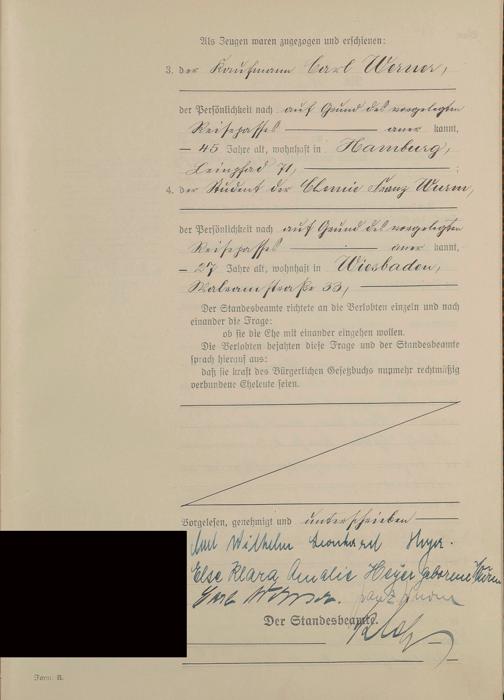 Als Zeugen waren zugezogen und erschienen:
3. der Kaufmann Carl Werner,
der Persönlichkeit nach auf Grund des vorgelegten
Reisepasses aner kannt,
45 Jahre alt, wohnhaft in Hamburg,
Leinpfad 71,
4. der Student der Chemie Franz Wurm,
der Persönlichkeit nach auf Grund des vorgelegten
Reisepasses aner kannt,
27 Jahre alt, wohnhaft in Wiesbaden,
Walramstraße 33,
Der Standesbeamte richtete an die Verlobten einzeln und nach
einander die Frage:
ob sie die Ehe mit einander eingehen wollen.
Die Verlobten bejahten diese Frage und der Standesbeamte
sprach hierauf aus:
daß sie kraft des Bürgerlichen Gesetzbuchs nunmehr rechtmäßig
verbundene Eheleute seien.
Vorgelesen, genehmigt und unterschrieben
Wilhelm Leonhard Heyer.
Else Klara Amalie Heyer geborene Wurm
Carl Werner. Franz Wurm
Der Standesbeamte.
Form. B.